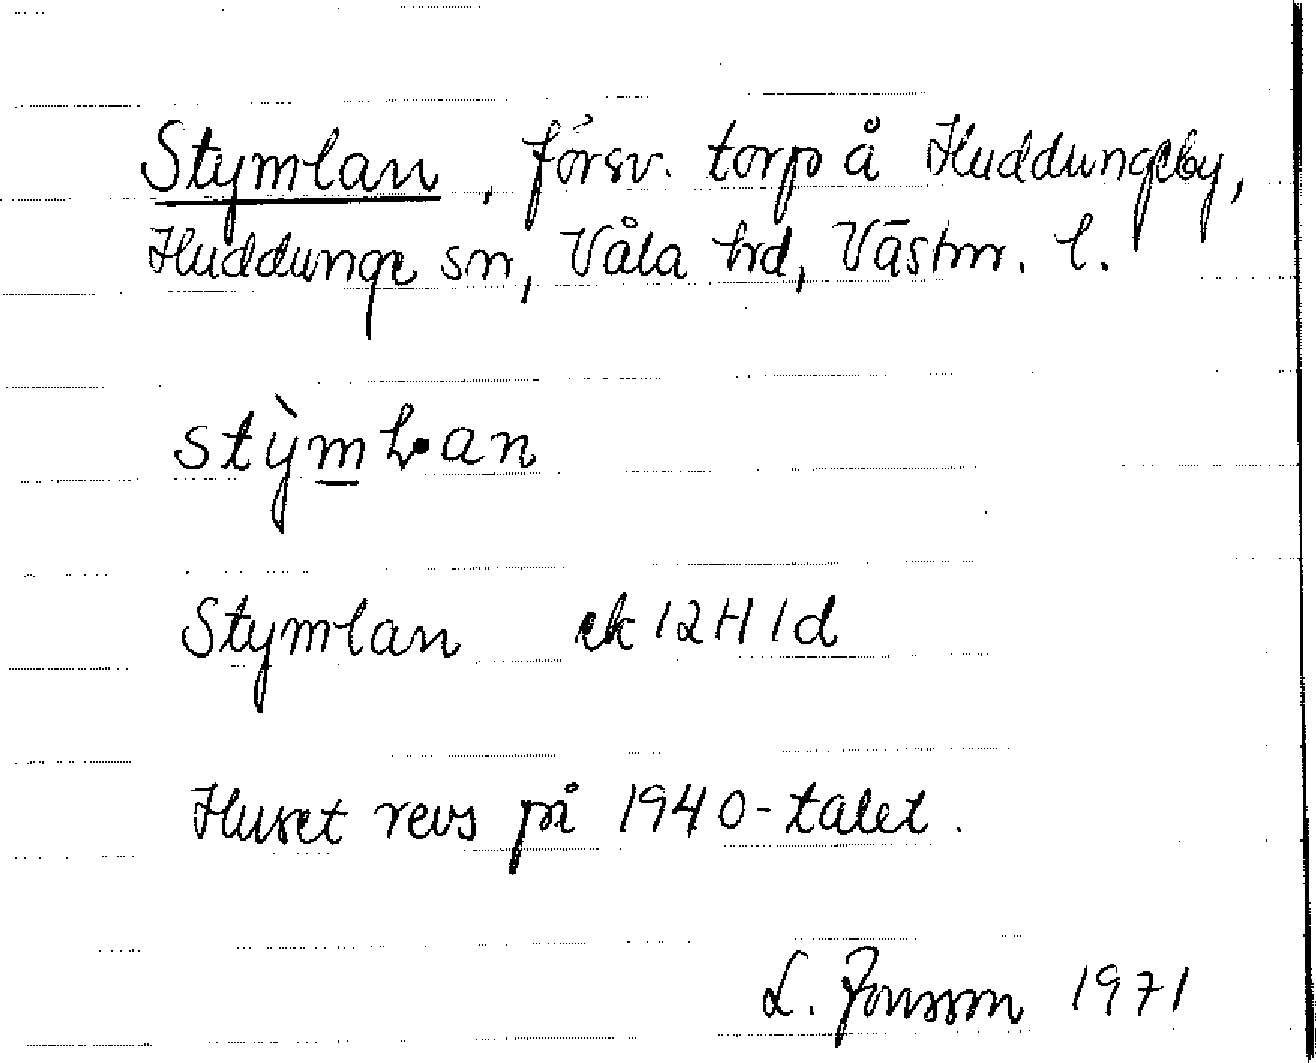 Stymlan, försv. torp å Huddungeby,
Huddunge sn, Våla hd, Västm. l.
stỳmlan
Stymlan ek 12H1d
Huset revs på 1940-talet.
L. Jonsson 1971